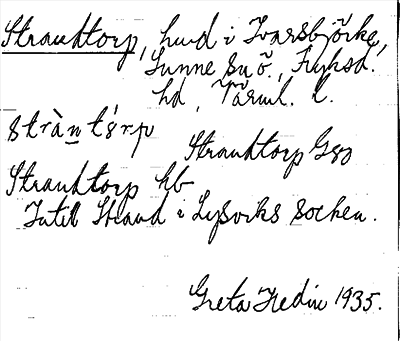 Strandtorp, hmd i Ivarsbjörke,
Sunne sn ö., Fryksd.
hd, Värml. l.
stràntɔ́rp
Strandtorp Gso
Strandtorp hb
Intill Strand i Lysviks socken.
Greta Hedin 1935.